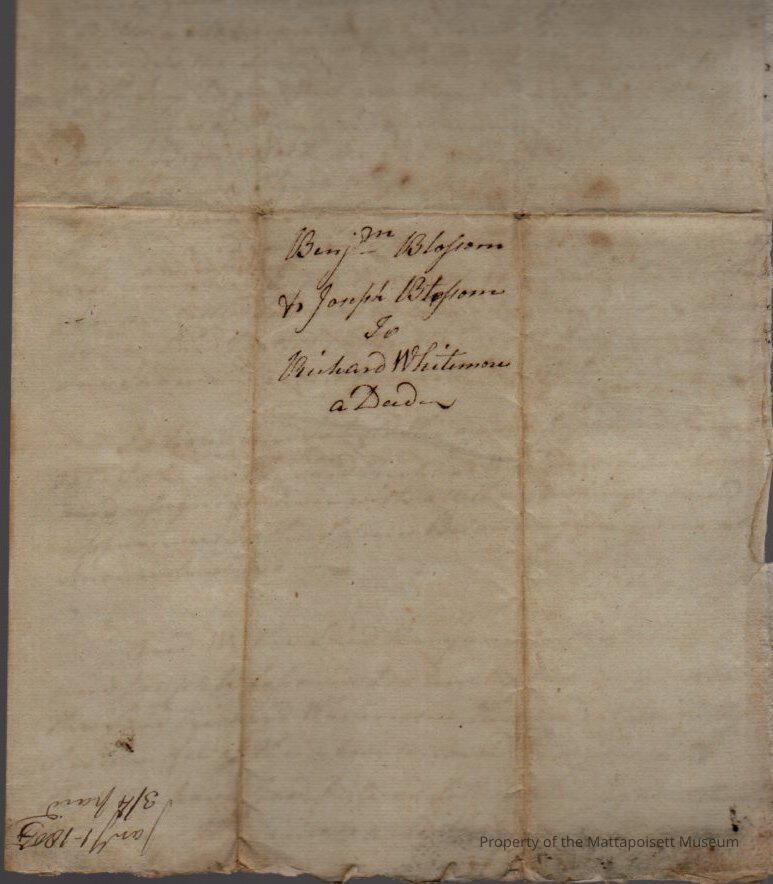 Benjm Blossom
& Joseph Blossom
To
Richard Whitemore
a Deed
3/4 paid
Property of the Mattapoisett Museum